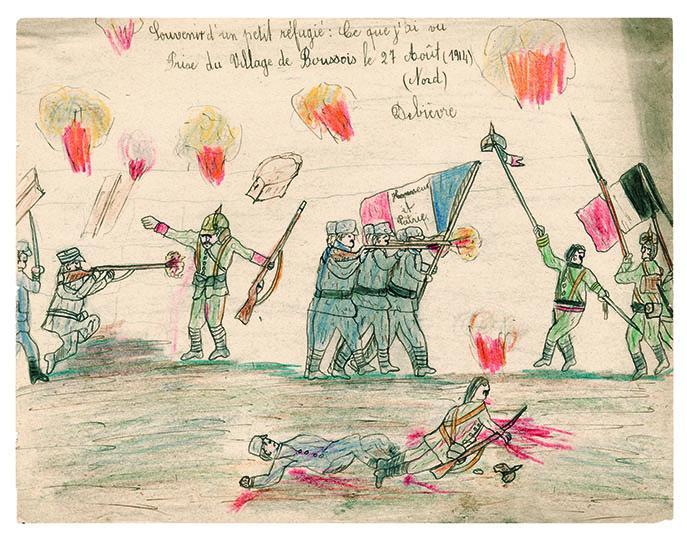 Souvenir d'un petit réfugié : Ce que j'ai vu
Prise du Village de Boussois le 27 Août (1914)
(Nord)
Debièvre
Honneur
et
Patrie